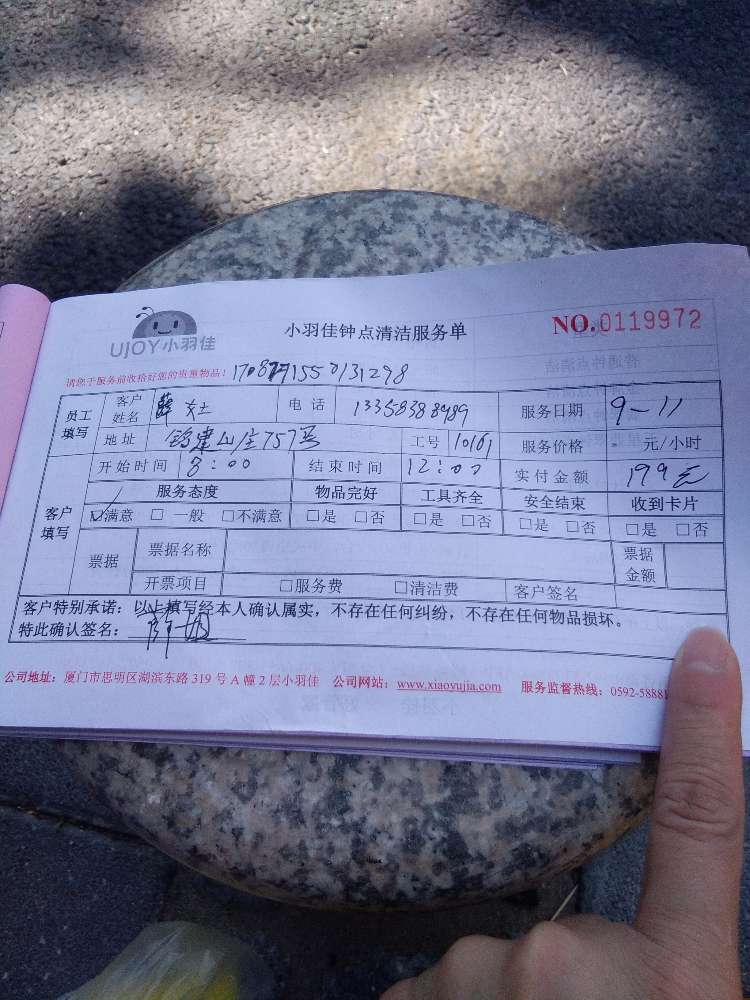 UJOY小羽佳
小羽佳钟点清洁服务单
NO.0119972
请您于服务前收拾好您的贵重物品!
员工填写 客户姓名 薛女士 电话 服务日期 9-11
地址 757号 工号 服务价格 元/小时
客户填写 开始时间 8:00 结束时间 12:00 实付金额 199元
服务态度 物品完好 工具齐全 安全结束 收到卡片
☑满意 □一般 □不满意 □是 □否 □是 □否 □是 □否 □是 □否
票据 票据名称 票据金额
开票项目 □服务费 □清洁费 客户签名
客户特别承诺:以上填写经本人确认属实,不存在任何纠纷,不存在任何物品损坏。
特此确认签名:
公司地址:厦门市思明区湖滨东路 319 号 A 幢 2 层小羽佳 公司网站:www.xiaoyujia.com 服务监督热线:0592-5888